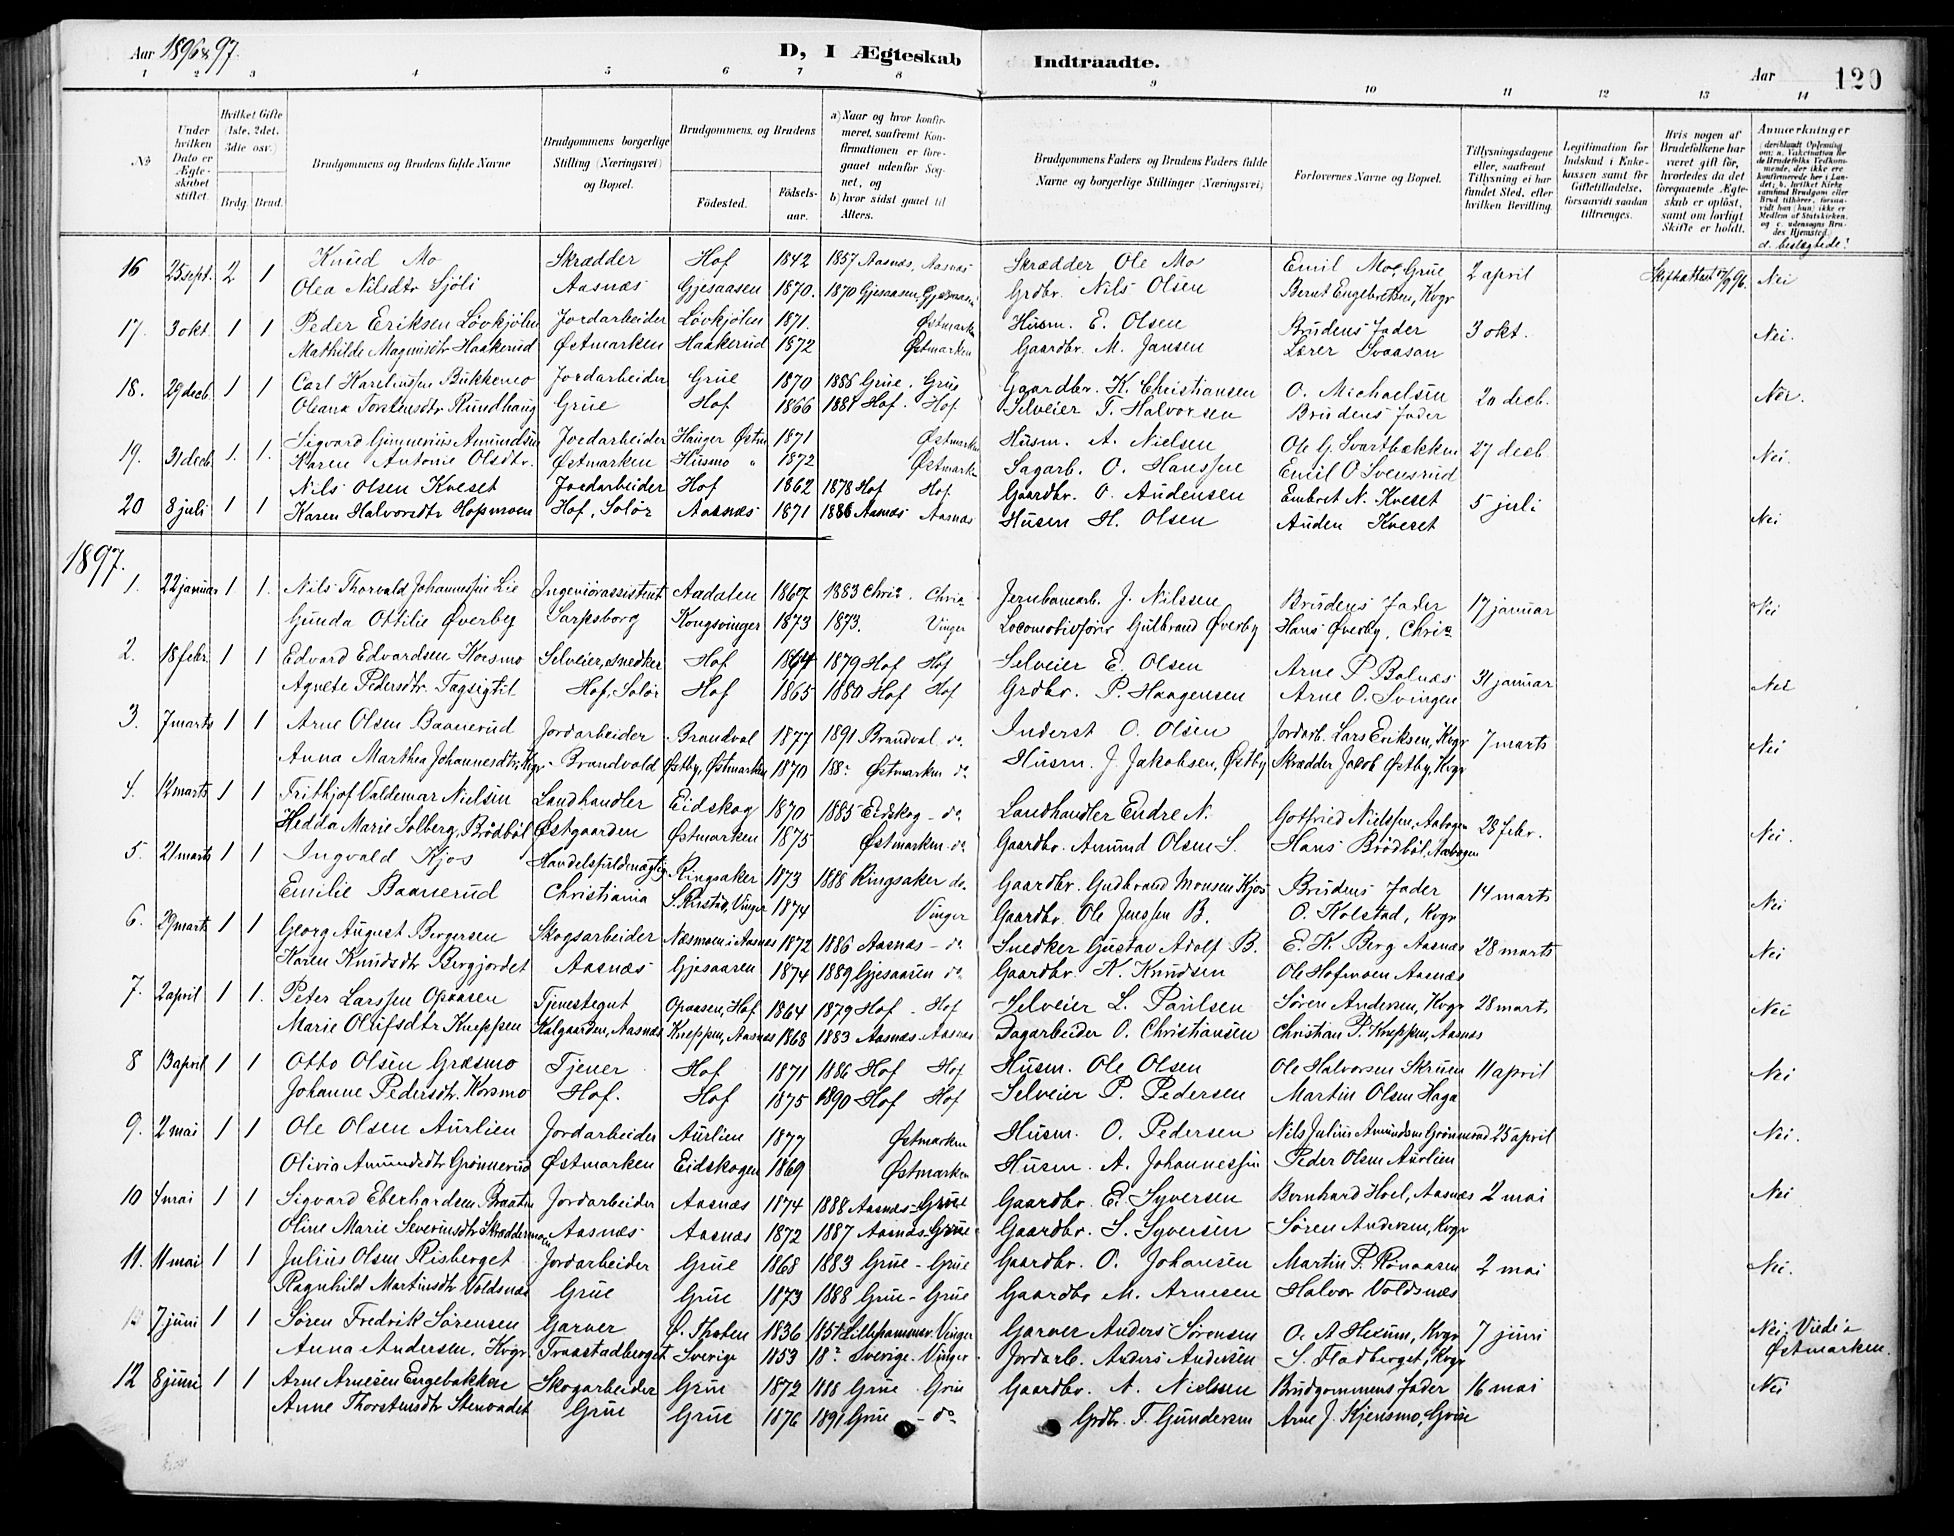 Aar 1896 & 97.
D, I Ægteskab Indtraadte.
Aar 120
1 2 3 4 5 6 7 8 9 10 11 12 13 14
No
Under hvilken Dato er Ægteskabet stiftet.
Hvilket Gifte (1ste, 2det, 3die osv.)
Brdg. Brud.
Brudgommens og Brudens fulde Navne
Brudgommens borgerlige Stilling (Næringsvei) og Bopæl.
Brudgommens og Brudens
Fødested.
Fødsels-aar.
a) Naar og hvor konfirmeret, saafremt Konfirmationen er foregaaet udenfor Sognet, og
b) hvor sidst gaaet til Alters.
Brudgommens Faders og Brudens Faders fulde Navne og borgerlige Stillinger (Næringsvei)
Forlovernes Navne og Bopæl.
Tillysningsdagene eller, saafremt Tillysning ei har fundet Sted, efter hvilken Bevilling
Legitimation for Indskud i Enkekassen samt for Giftetilladelse, forsaavidt saadan tiltrænges.
Hvis nogen af Brudefolkene har været gift før, hvorledes da det foregaaende Ægteskab er opløst, samt om lovligt Skifte er holdt.
Anmærkninger
d. beslægtede?
16 25 sept. 2 1 Knud Mo Skrædder Hof 1842 1857 Aasnæs, Aasnæs Skrædder Ole Mo Emil Moe, Grue 2 april Skifteattest 17/9 96. Nei
Olea Nilsdtr Sjöli Aasnæs Gjesaasen 1870. 1870 Gjesaasen, Gjesaasen Grdbr. Nils Olsen Bernt Engebretsen, Kvgr
17. 3 okt. 1 1 Peder Eriksen Løvkjølen Jordarbeider Løvkjølen 1871. Østmarken Husm. E. Olsen Brudens Fader 3 okt. Nei.
Mathilde Magnusdtr Haakerud Østmarken Haakerud 1872 Østmarken Gaardbr. M. Jansen Lærer Svaasan
18. 29 decb. 1 1 Carl Karelinssen Bukkemo Jordarbeider Grue 1870 1886 Grue. Grue Gaardbr. K. Christiansen O. Michaelsen 20 decb. Nei.
Oleana Torstensdtr Rundhaug Grue Hof 1866 1881 Hof. Hof. Selveier T. Halvorsen Brudens Fader
19. 31 decb. 1. 1. Sigvard Gunnerius Amundsen Jordarbeider Hauger Østm 1871 Østmarken Husm. A. Nielsen Ole G. Svartbækken 27 decb. Nei.
Karen Antonie Olsdtr. Østmarken Husmo " 1872 Østmarken Sagarb. O. Hanssen Emil O Svensrud
20 8 juli 1 1 Nils Olsen Kveset Jordarbeider Hof 1862 1878 Hof Hof. Gaardbr. O. Audensen Embret N. Kveset 5 juli Nei
Karen Halvorsdtr Hofsmoen Hof, Solør Aasnæs 1871 1886 Aasnæs Aasnæs Husm H. Olsen Auden Kveset
1897.
1. 22 januar 1 1. Nils Thorvald Johannessen Lie Ingeniørassistent Aadalen 1867 1883 Chria. Chria Jernbanearb. J. Nilssen Brudens Fader 17 januar Nei
Gunda Ottilie Øverby Sarpsborg Kongsvinger 1873 1873. Vinger Locomotivfører Gulbrand Øverby Hans Øverby, Chria
2. 18 febr. 1 1 Edvard Edvardsen Kosmo Selveier, snedker Hof 1864 1879 Hof Hof Selveier E. Olsen Arne P Bolnæs 31 januar Nei
Agnete Pedersdtr. Tagsigtil Hof, Solør Hof 1865 1880 Hof Hof Grdbr. P. Haagensen Arne O. Svingen
3. 7 marts 1 1 Arne Olsen Baanerud Jordarbeider Brandval 1877 1891 Brandval do. Inderst O. Olsen Jordarb. Lars Eriksen, Kvgr 7 marts Nei
Anna Marthea Johannesdtr, Kvgr Brandvold Østby, Østmarken 1870 188? Østmarken do Husm. J. Jakobsen, Østby Skrædder Jacob Østby, Kvgr
4. 12 marts 1 1 Frithjof Valdemar Nielsen Landhandler Eidskog 1870 1885 Eidskog - do. Landhandler Endre N. Gotfried Nielssen, Aabogen 28 febr. Nei.
Hedda Marie Solberg, Brødbøl Østgaarden Østmarken 1875 Østmarken do Gaardbr. Amund Olsen S. Hans Brödböl, Aabogen
5. 21 marts 1 1 Ingvald Kjos Handelsfuldmægtig Ringsaker 1873 1888 Ringsaker do. Gaardbr. Gudbrand Monsen Kjos Brudens Fader 14 marts Nei
Emilie Baanerud Christiania S. Rustad, Vinger 1874 Vinger Gaardbr. Ole Jenssen B. O. Kolstad, Kvgr
6. 29 marts 1 1 Georg August Bergersen Skogsarbeider Næsmoen i Aasnæs 1872 1886 Aasnæs - do Snedker Gustav Adolf B. E. K. Berg Aasnæs 28 marts Nei
Karen Knudsdtr Bergjordet Aasnæs Gjesaasen 1874 1889 Gjesaasen do Gaardbr. K. Knudsen Ole Hofmoen Aasnæs
7. 2 april 1 1. Peter Larssen Opaasen Tjenestegut Opaasen, Hof 1864 1879 Hof - Hof Selveier L. Paulsen Søren Andersen, Kvgr 28 marts Nei
Marie Olufsdtr Kneppen Kalgaarden, Aasnæs Kneppen, Aasnæs 1868 1883 Aasnæs - Aasnæs Dagarbeider O. Christiansen Christian P. Kneppen, Aasnæs
8 13 april 1 1 Otto Olsen Græsmo Tjener Hof 1871 1886 Hof Hof Husm. Ole Olsen Ole Halvorsen Skruen 11 april Nei
Johanne Pedersdtr. Kosmo Hof. Hof 1875 1890 Hof Hof Selveier P. Pedersen Martin Olsen Haga
9. 2 mai 1 1 Ole Olsen Aurlien Jordarbeider Aurlien 1877 Østmarken Husm. O. Pedersen Nils Julius Amundsen Grønnerud 25 april Nei.
Olivia Amundsdtr Grønnerud Østmarken Eidskogen 1869 Østmarken Husm. A. Johannessen Peder Olsen Aurlien
10 4 mai 1 1 Sigvard Eberhardsen Braaten Jordarbeider Aasnæs 1874 1888 Aasnæs - Grue Gaardbr. E. Syversen Bernhard Hoel, Aasnæs 2 mai Nei
Oline Marie Severinsdtr Skræddermoen Aasnæs Aasnæs 1872 1887 Aasnæs - Grue Gaardbr. S. Syversen Søren Andersen, Kvgr
11. 11 mai 1 1 Julius Olsen Risberget Jordarbeider Grue 1868 1883 Grue - Grue Gaardbr. O. Johansen Martin P. Rønaasen 2 mai Nei.
Ragnhild Martinsdtr Voldsnæs Grue Grue 1873 1888 Grue - Grue Gaardbr M. Arnesen Halvor Voldsnæs
7 juni 1 1 Søren Fredrik Sørensen Garver Ø. Thoten 1836 1851 Lillehammer. Vinger Garver Anders Sørensen O. A Hexum, Kvgr 7 juni Nei. Viede i Østmarken.
Anna Andersen, Kvgr. Traastadberget Sverige 1853 18? Sverige. Vinger Jordarb. Anders Andersen S. Fladberget, Kvgr
12 8 juni 1 1 Arne Arnesen Engebakken Skogarbeider Grue 1872 1888 Grue. Grue Gaardbr. A. Nielssen Brudgommens Fader 16 mai Nei
Anne Thorstensdtr Stenvadet Grue Grue 1876 1891 Grue - do Grdbr. T. Gundersen Arne J. Kjensmo, Grue